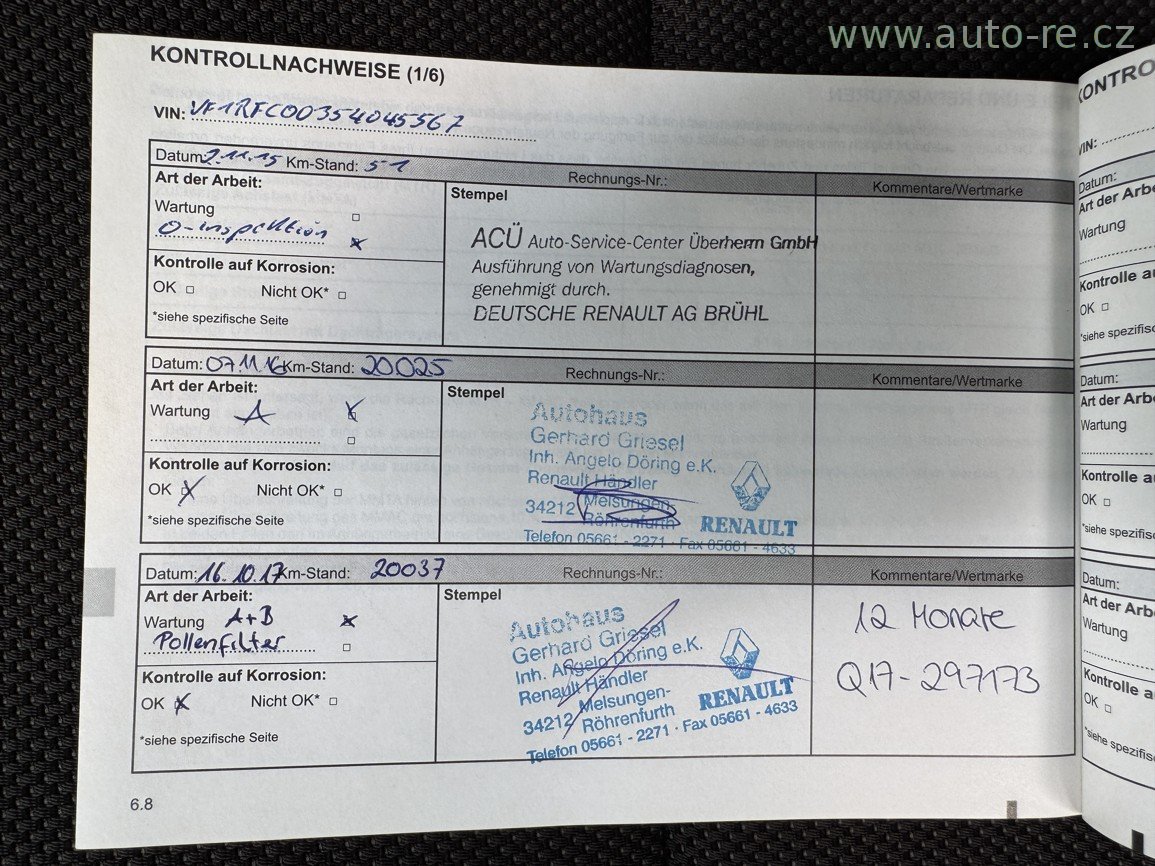 www.auto-re.cz
KONTROLLNACHWEISE (1/6)
VIN: VF1RFC00354045567
Datum: 2.11.15 Km-Stand: 51 Rechnungs-Nr.: Kommentare/Wertmarke
Art der Arbeit: Stempel
Wartung
0-Inspektion
Kontrolle auf Korrosion:
OK Nicht OK*
*siehe spezifische Seite
ACÜ Auto-Service-Center Überherrn GmbH
Ausführung von Wartungsdiagnosen,
genehmigt durch.
DEUTSCHE RENAULT AG BRÜHL
Datum: 07.11.16 Km-Stand: 20025 Rechnungs-Nr.: Kommentare/Wertmarke
Art der Arbeit: Stempel
Wartung A
Kontrolle auf Korrosion:
OK Nicht OK*
*siehe spezifische Seite
Autohaus
Gerhard Griesel
Inh. Angelo Döring e.K.
Renault Händler
34212 Melsungen-
Röhrenfurth
RENAULT
Telefon 05661 - 2271 · Fax 05661 - 4633
Datum: 16.10.17 Km-Stand: 20037 Rechnungs-Nr.: Kommentare/Wertmarke
Art der Arbeit: Stempel
Wartung A+B
Pollenfilter
Kontrolle auf Korrosion:
OK Nicht OK*
*siehe spezifische Seite
Autohaus
Gerhard Griesel
Inh. Angelo Döring e.K.
Renault Händler
34212 Melsungen-
Röhrenfurth
RENAULT
Telefon 05661 - 2271 · Fax 05661 - 4633
12 Monate
Q17-297173
6.8
KONTRO
VIN:
Datum:
Art der Arb
Wartung
Kontrolle au
OK
*siehe spezifisc
Datum:
Art der Arb
Wartung
Kontrolle a
OK
*siehe spezifis
Datum:
Art der Arb
Wartung
Kontrolle a
OK
*siehe spezifis